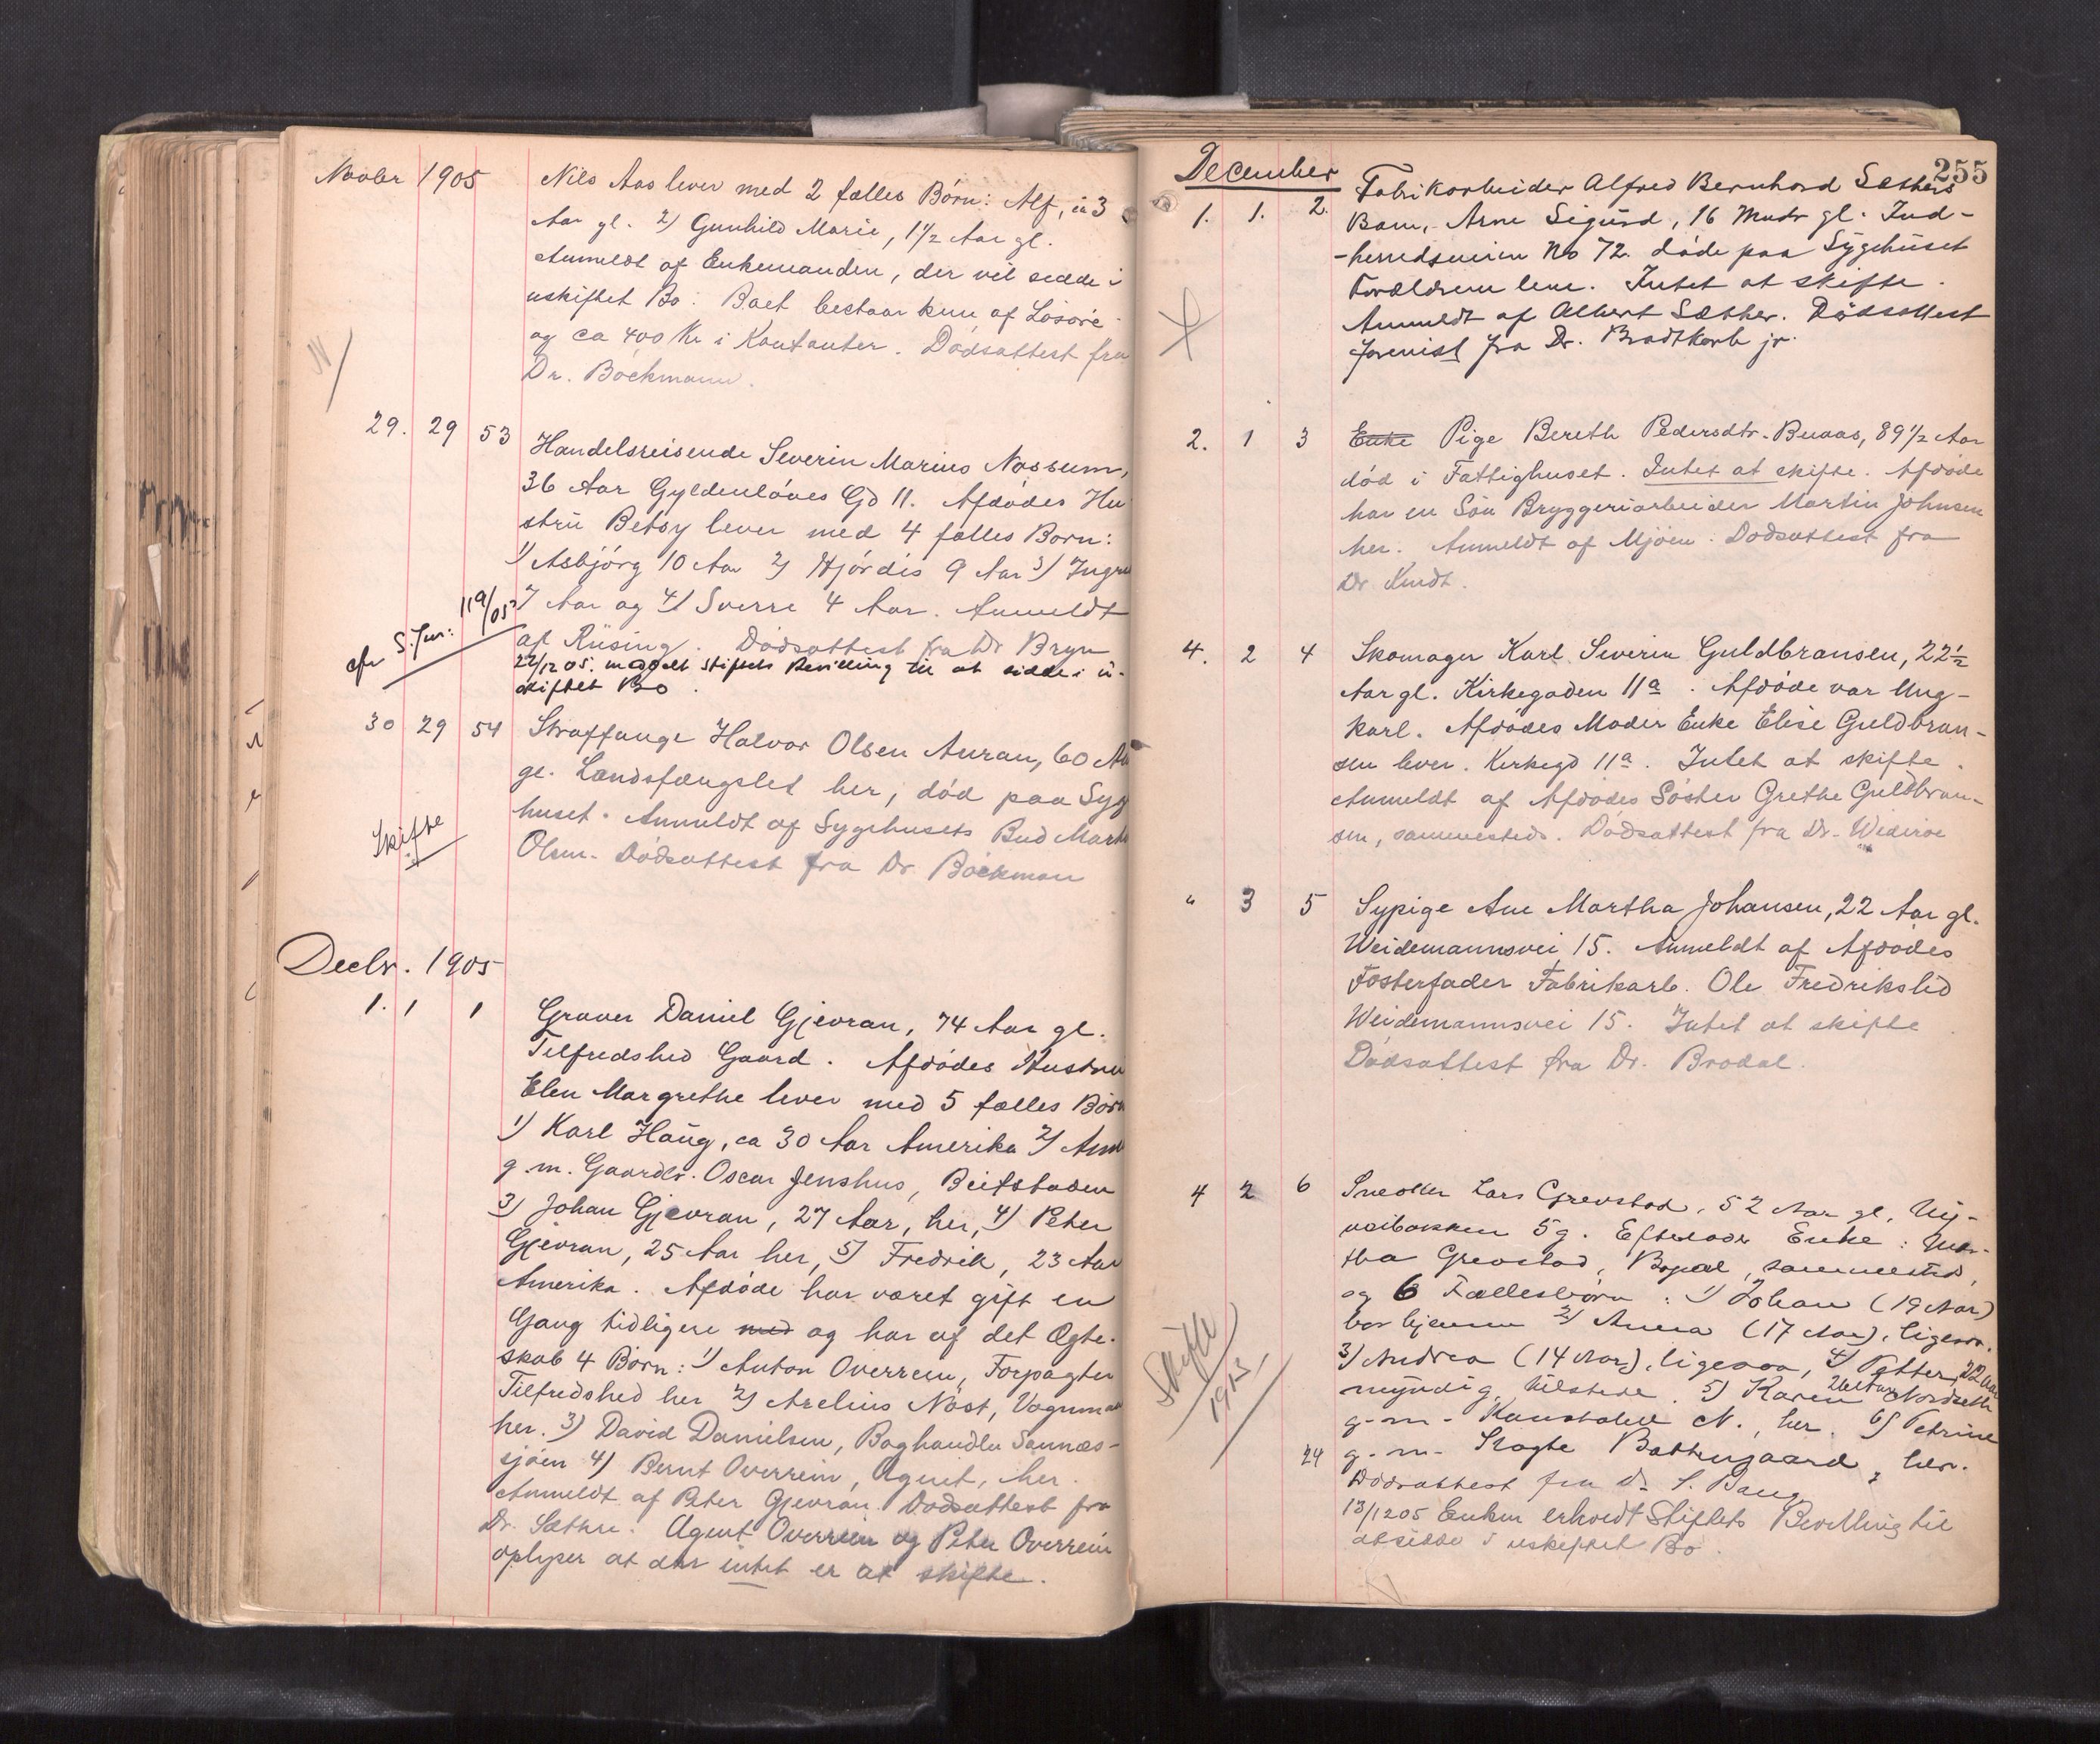 Novbr 1905
Nils Aas lever med 2 fælles Börn: Alf, 3
Aar gl. 2) Gunhild Marie, 1 1/2 Aar gl.
Anmeldt af Enkemanden, der vil sidde i
uskiftet Bo. Boet bestaar kun af Lösöre
og ca 400 Kr i Kontanter. Dödsattest fra
Dr. Böckmann.
29. 29 53
Handelsreisende Severin Marius Nossum,
36 Aar Gyldenlöves Gd 11. Afdödes Hu
stru Betsy lever med 4 fælles Börn:
1) Asbjörg 10 Aar 2) Hjördis 9 Aar 3)
7 Aar og 4) Sverre 4 Aar. Anmeldt
af Rüsing. Dödsattest fra Dr Bryn
cfr S. Jur: 119/05
22/12 05. meddelt Stiftets Bevilling til at sidde i u-
skiftet Bo.
30 29 54
Straffange Halvor Olsen Auran, 60 Aar
gl. Landsfængslet her, död paa Syge
huset. Anmeldt af Sygehusets Bud
Olsen. Dödsattest fra Dr Böckman
Skifte
Decbr. 1905
1. 1 1
Graver Daniel Gjevran, 74 Aar gl.
Tilfredshed Gaard. Afdödes Hustru
Elen Margrethe lever med 5 fælles Börn
1) Karl Haug, ca 30 Aar Amerika 2)
g. m. Gaardbr. Oscar Jenshus, Beitstaden
3) Johan Gjevran, 27 Aar, her, 4) Peter
Gjevran, 25 Aar her, 5) Fredrik, 23 Aar
Amerika. Afdöde har været gift en
Gang tidligere med og har af det Ægte-
skab 4 Börn: 1) Anton Overrein, Forpagter
Tilfredshed her 2) Arelius Nöst, Vognmand
her. 3) David Danielsen, Boghandler Sannes-
sjöen 4) Bernt Overrein, Agent, her.
Anmeldt af Peter Gjevran. Dödsattest fra
Dr. Sæthre. Agent Overrein og Peter Overrein
oplyser at der intet er at skifte.
255
December
1. 1. 2.
Fabrikarbeider Alfred Bernhard Sæthers
Barn, Arne Sigurd, 16 Mndr gl. Ind-
-herredsveien No 72. döde paa Sygehuset
Forældrene leve. Intet at skifte.
Anmeldt af Albert Sæther. Dödsattest
forevist fra Dr. Bradtkorb jr.
2. 1 3
Enke Pige Bereth Pedersdtr. Buaas, 89 1/2 Aar
död i Fattighuset. Intet at skifte. Afdöde
har en Sön Bryggeriarbeider Martin Johnsen
her. Anmeldt af Mjöen. Dödsattest fra
Dr. Kindt.
4. 2 4
Skomager Karl Severin Guldbransen, 22 1/2
Aar gl. Kirkegaden 11a. Afdöde var Ung-
karl. Afdödes Moder Enke Elise Guldbran-
sen lever. Kirkegd 11a. Intet at skifte.
Anmeldt af Afdödes Söster Grethe Guldbran-
sen, sammesteds. Dödsattest fra Dr. Wideröe
" 3 5
Sypige Ane Martha Johansen, 22 Aar gl.
Weidemannsvei 15. Anmeldt af Afdödes
Fosterfader Fabrikarb. Ole Fredrikslid
Weidemannsvei 15. Intet at skifte
Dödsattest fra Dr. Brodal.
4 2 6
Snedker Lars Grevstad, 52 Aar gl. Ny-
veibakken 5g. Efterlader Enke: Mar-
tha Grevstad, Bopæl, sammested,
og 6 Fællesbörn: 1) Johan (19 Aar)
bor hjemme 2) Anna (17 Aar), ligesaa.
3) Andrea (14 Aar), ligesaa, 4) Petter, 22 Aar
myndig, tilstede. 5) Karen Nordseth
g. m. Konstabel N., her. 6) Petrine
24 g. m. Slagte Bakkengaard, her.
Dödsattest fra Dr. S. Bang
13/12 05 Enken erholdt Stiftets Bevilling til
at sidde i uskiftet Bo.
Skifte
1913